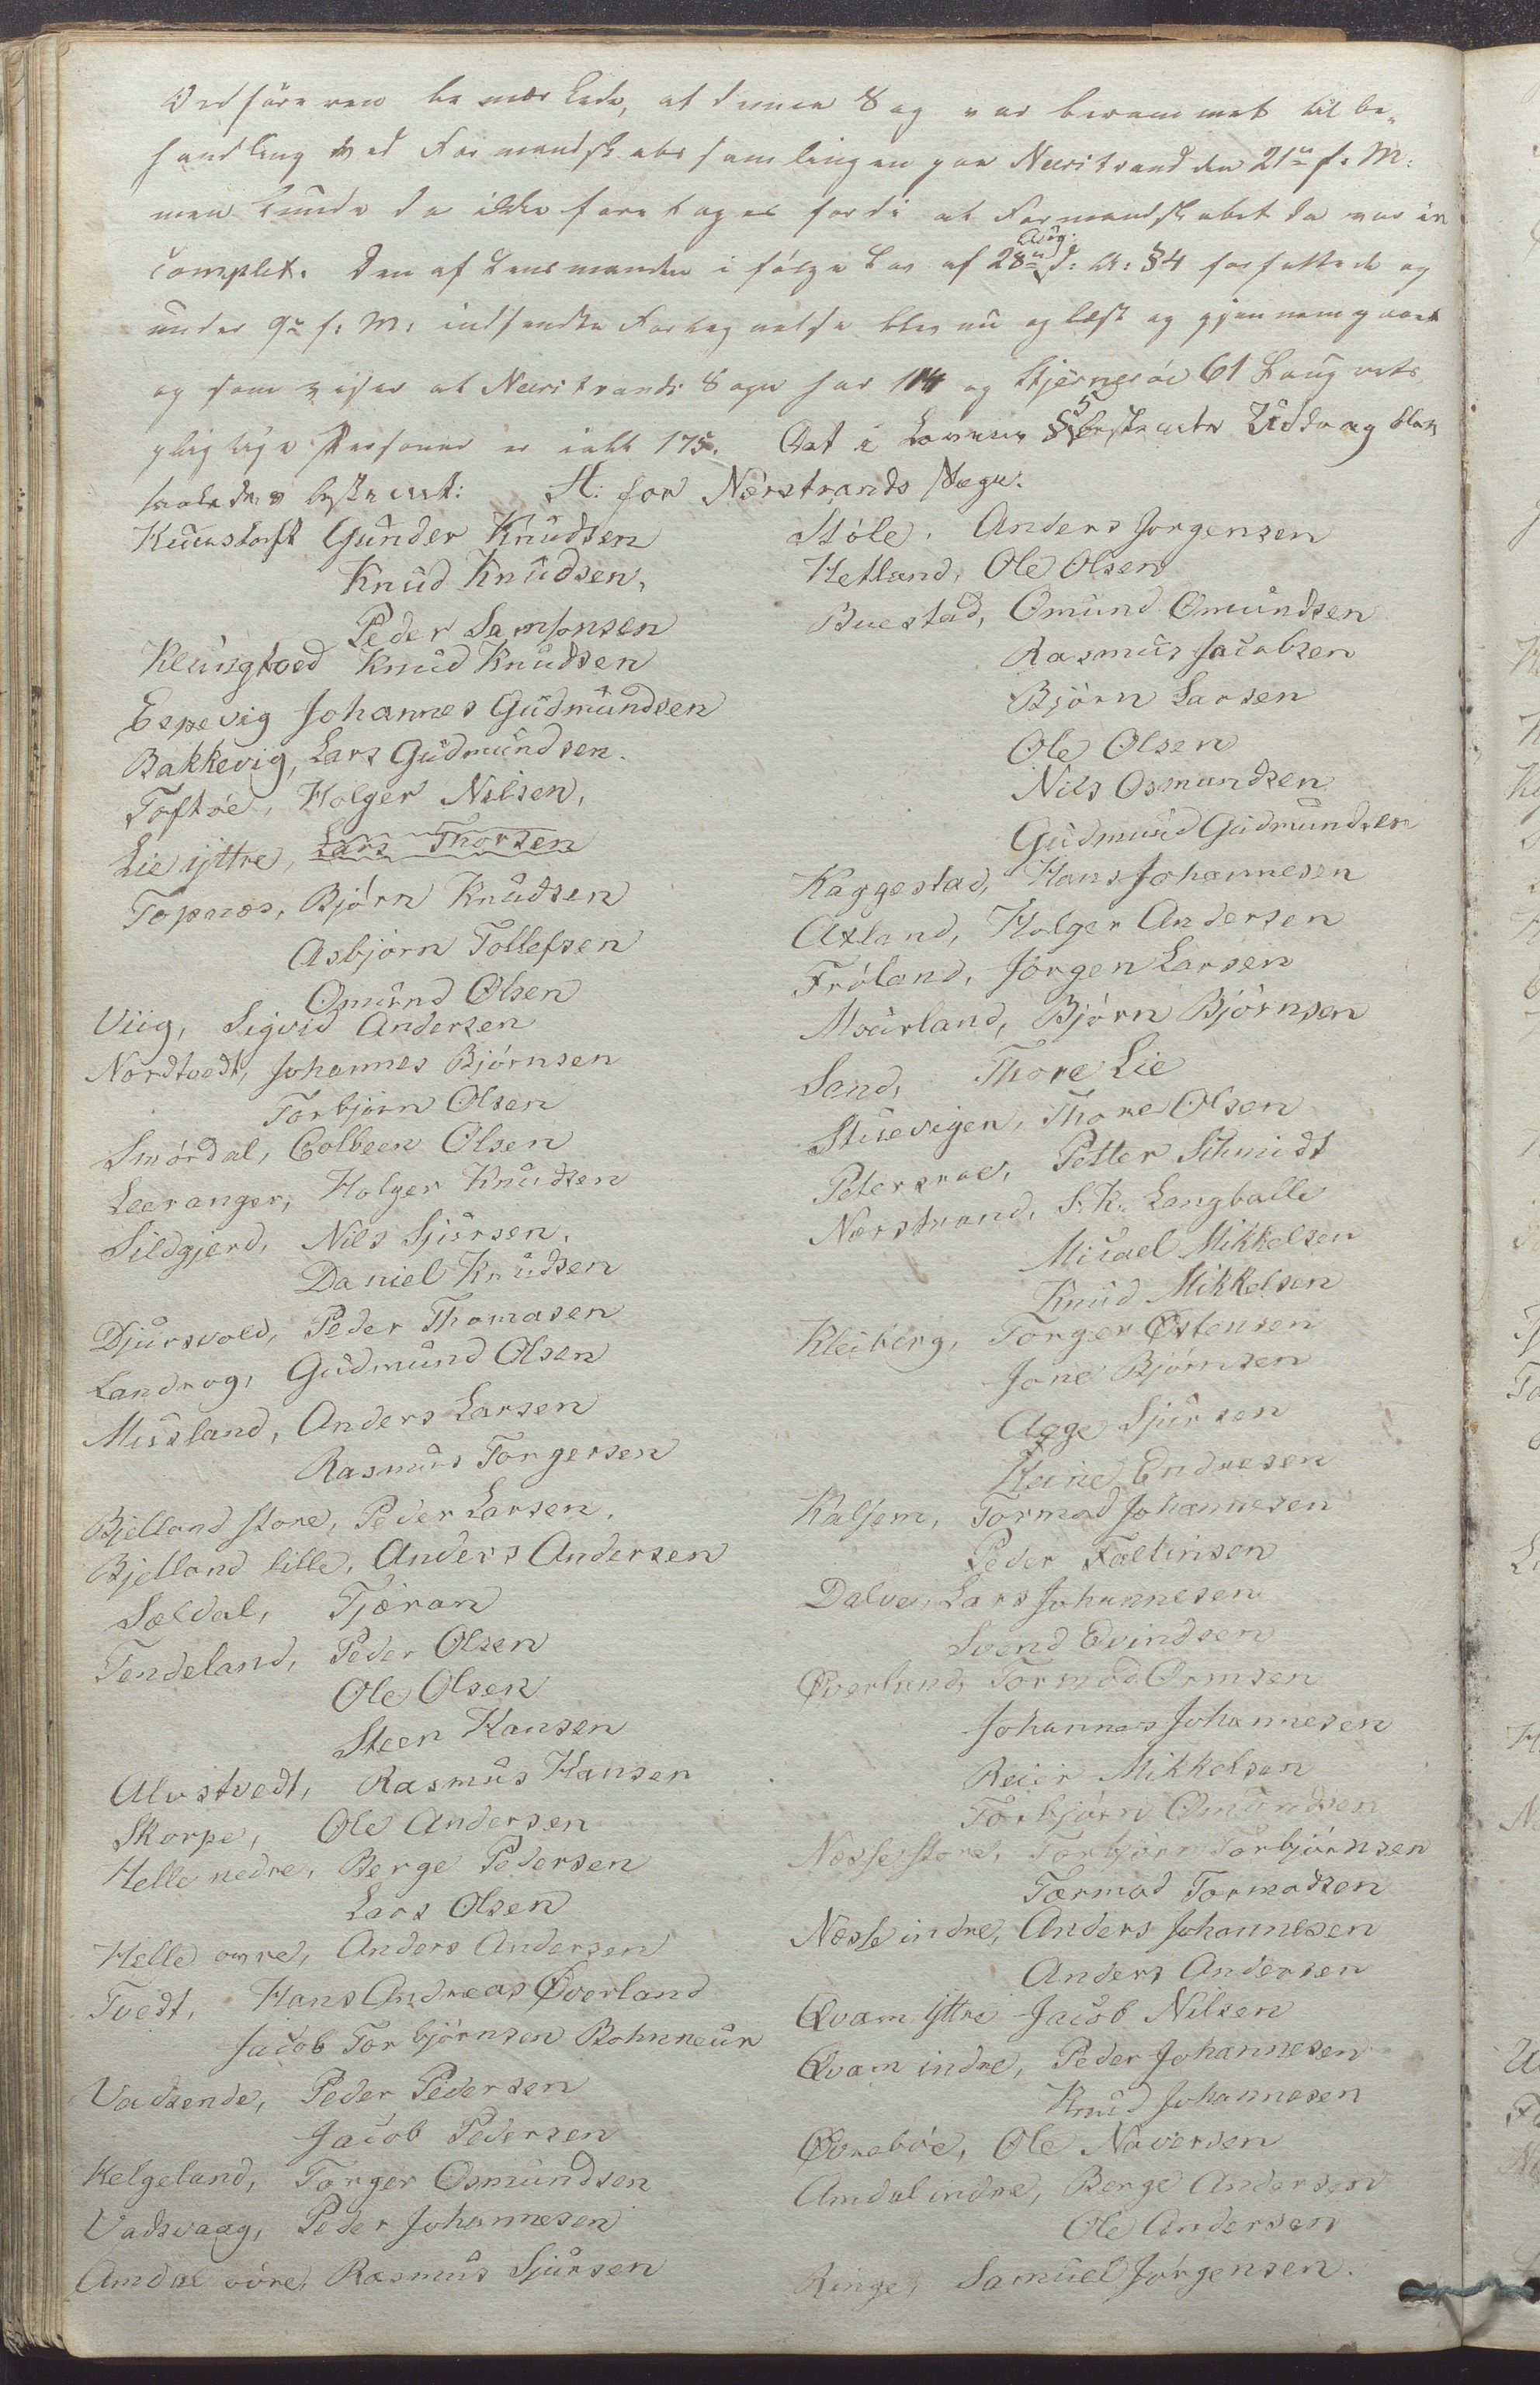 Ordføreren bemærkede, at denne Sag var berammet til be„
handling ved Formandskabs samlingen paa Neerstrand den 21de f: M:
men kunde da ikke foretages fordi at Formandskabet da var in
complet. Den af Lensmanden i følge Lov af 28de Aug: d: A: §4 forfattede og
under 9de f: M: indsendte Fortegnelse blev nu oplæst og gjennemgaaet
og som viser at Neerstrands Sogn har 114 og Hjernerøe 61 Laugrets
pligtige Personer er ialt 175. Det i Lovens § 5 bestemte Udtog blev
saaledes bestemt: A: for Nerstrands Sogn.
Gunder Knudsen
Knud Knudsen,
Peder Samsonsen
Klungtved Knud Knudsen
Espevig Johannes Gudmundsen
Bakkevig, Lars Gudmundsen.
Toftøe, Holger Nilsen,
Lie ijttre, Lars Thorsen
Topnæs, Bjørn Knudsen
Asbjørn Tollefsen
Omund Olsen
Viig, Sigvid Andersen
Nordtvedt, Johannes Bjørnsen
Torbjørn Olsen
Smørdal, Colbeen Olsen
Leeranger, Holger Knudsen
Sildgjerd, Nils Sjursen,
Daniel Knudsen
Djursvold, Peder Thomasen
Landrog, Gudmund Olsen
Musland, Anders Larsen
Rasmus Torgersen
Bjelland store, Peder Larsen,
Bjelland lille, Anders Andersen
Sældal, Tjæran
Tendeland, Peder Olsen
Ole Olsen
Steen Hansen
Alvstvedt, Rasmus Hansen
Skorpe, Ole Andersen
Helle nedre, Berge Pedersen
Lars Olsen
Helle øvre, Anders Andersen
Tvedt, Hans Andreas Øverland
Jacob Torbjørnsen Bohnneur
Vadsende, Peder Pedersen
Jacob Pedersen
Helgeland, Torger Osmundsen
Vadsvaag, Peder Johannesen
Amdal øvre, Rasmus Sjursen
Støle, Anders Jørgensen
Hetland, Ole Olsen
Buestad, Omund Omundsen
Rasmus Jacobsen
Bjørn Larsen
Ole Olsen
Nils Osmundsen
Gudmund Gudmundsen
Kaggestad, Hans Johannesen
Axland, Holger Andersen
Frøland, Jørgen Larsen
Mourland, Bjørn Bjørnsen
Sand, Thore Lie
Stuevigen, Thore Olsen
Petersroe, Petter Schmidt
Nerstrand, S. K. Langballe
Micael Mikkelsen
Knud Mikkelsen
Kleiberg, Torger Østensen
Jone Bjørnsen
Aage Sjursen
Endresen
Kalsem, Tormod Johannesen
Peder Fæltinsen
Dalve, Lars Johannesen
Svend Evindsen
Øverland, Tormod Ormsen
Johannes Johannesen
Reier Mikkelsen
Torbjørn Omundsen
Næsse store, Torbjørn Torbjørnsen
Tormod Tormodsen
Næsse indre, Anders Johannesen
Anders Andersen
Qvam ijttre Jacob Nilsen
Qvam indre, Peder Johannesen
Knud Johannesen
Øvrebøe, Ole Naversen
Amdal indre, Berge Andersen
Ole Andersen
Ringe, Samuel Jørgensen.